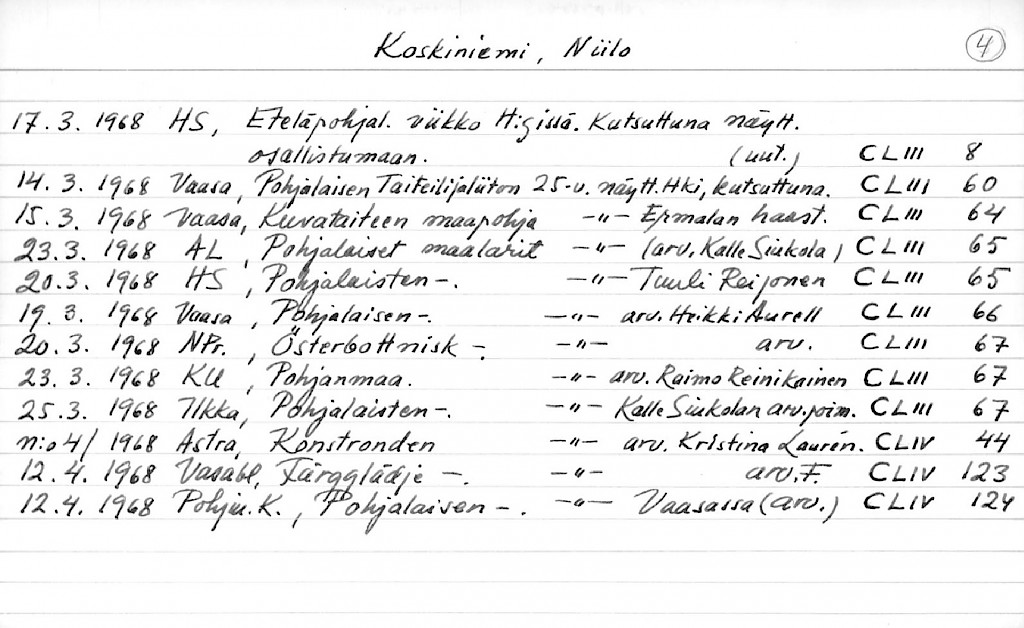 Koskiniemi, Niilo 4
17.3. 1968 HS, Eteläpohjal. viikko H:gissä. Kutsuttuna näytt.
osallistumaan. (uut.) CLIII 8
14.3. 1968 Vaasa, Pohjalaisen Taiteilijaliiton 25-v. näytt. Hki, kutsuttuna. CLIII 60
15.3. 1968 Vaasa, Kuvataiteen maapohja -"- Ermalan haast. CLIII 64
23.3. 1968 AL, Pohjalaiset maalarit -"- (arv. Kalle Siukola) CLIII 65
20.3. 1968 HS, Pohjalaisten -. -"- Tuuli Reijonen CLIII 65
19.3. 1968 Vaasa, Pohjalaisen -. -"- arv. Heikki Aurell CLIII 66
20.3. 1968 NPr., Österbottnisk -. -"- arv. CLIII 67
23.3. 1968 KU, Pohjanmaa. -"- arv. Raimo Reinikainen CLIII 67
25.3. 1968 Ilkka, Pohjalaisten -. -"- Kalle Siukolan arv. poim. CLIII 67
n:o 4/ 1968 Astra, Konstronden -"- arv. Kristina Laurén. CLIV 44
12.4. 1968 Vasabl, Färgglädje -. -"- arv. F. CLIV 123
12.4. 1968 Pohj. K., Pohjalaisen -. -"- Vaasassa (arv.) CLIV 124